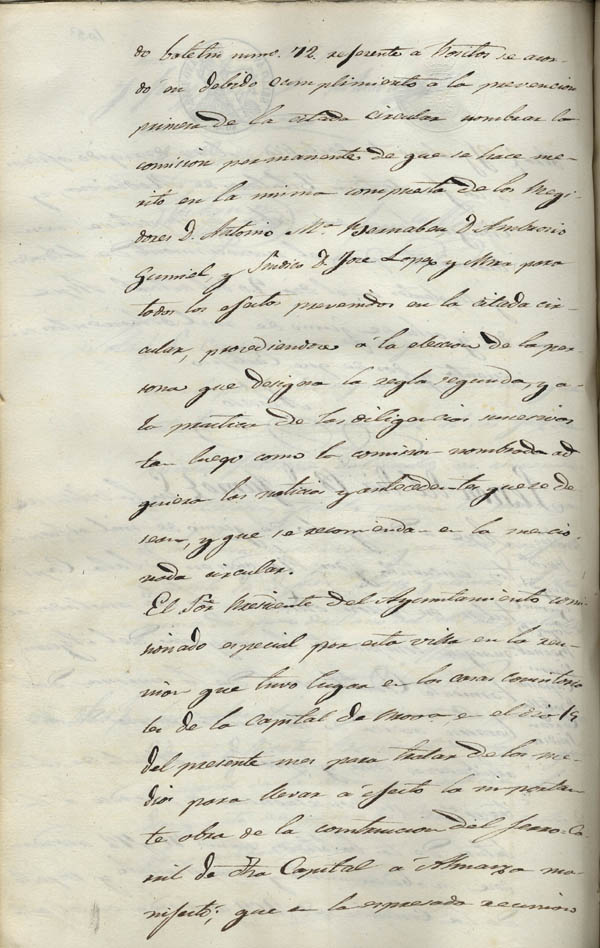 do boletin num. 72. referente a Positos se acor-
dó en debido cumplimiento a la prevencion
primera de la citada circular nombrar la
comision permanente de que se hace me-
rito en la misma compuesta de los Regi-
dores D. Antonio Mª Bernabeu D. Ambrosio
Gumiel, y Sindico D. Jose Lopez y Mira para
todos los efectos prevenidos en la citada cir-
cular, procediendose á la eleccion de la per-
sona que designa la regla segunda, y a
la practica de las diligencias sucesivas
tan luego como la comision nombrada ad
quiera las noticias y antecedentes que se de-
sean, y que se recomienda en la mencio-
nada circular.
El Sor. Presidente del Ayuntamiento comi-
sionado especial por esta villa en la reu-
nion que tuvo lugar en las casas consistoria
les de la capital de Prova en el dia 19
del presente mes para tratar de los me-
dios para llevar á efecto la importan-
te obra de la construccion del ferro-Ca-
rril de dha Capital á Almanza ma-
nifestó; que en la espresada reunion